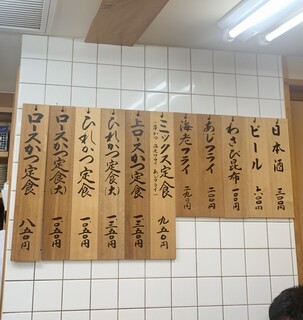 日本酒 三〇〇円
ビール 六〇〇円
わさび昆布 一〇〇円
あじフライ
海老フライ
ミックス定食 九五〇円
上ロースかつ定食 一三五〇円
ひれかつ定食(大) 一三五〇円
ひれかつ定食 一〇五〇円
ロースかつ定食(大) 一〇五〇円
ロースかつ定食 八五〇円